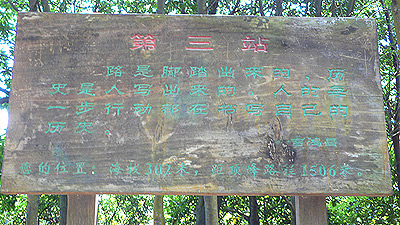 第三站
路是脚踏出来的,历
史是人写出来的。人的每
一步行动都在书写自己的
历史。
吉鸿昌
您的位置:海拔302米,顶峰路程1506米。